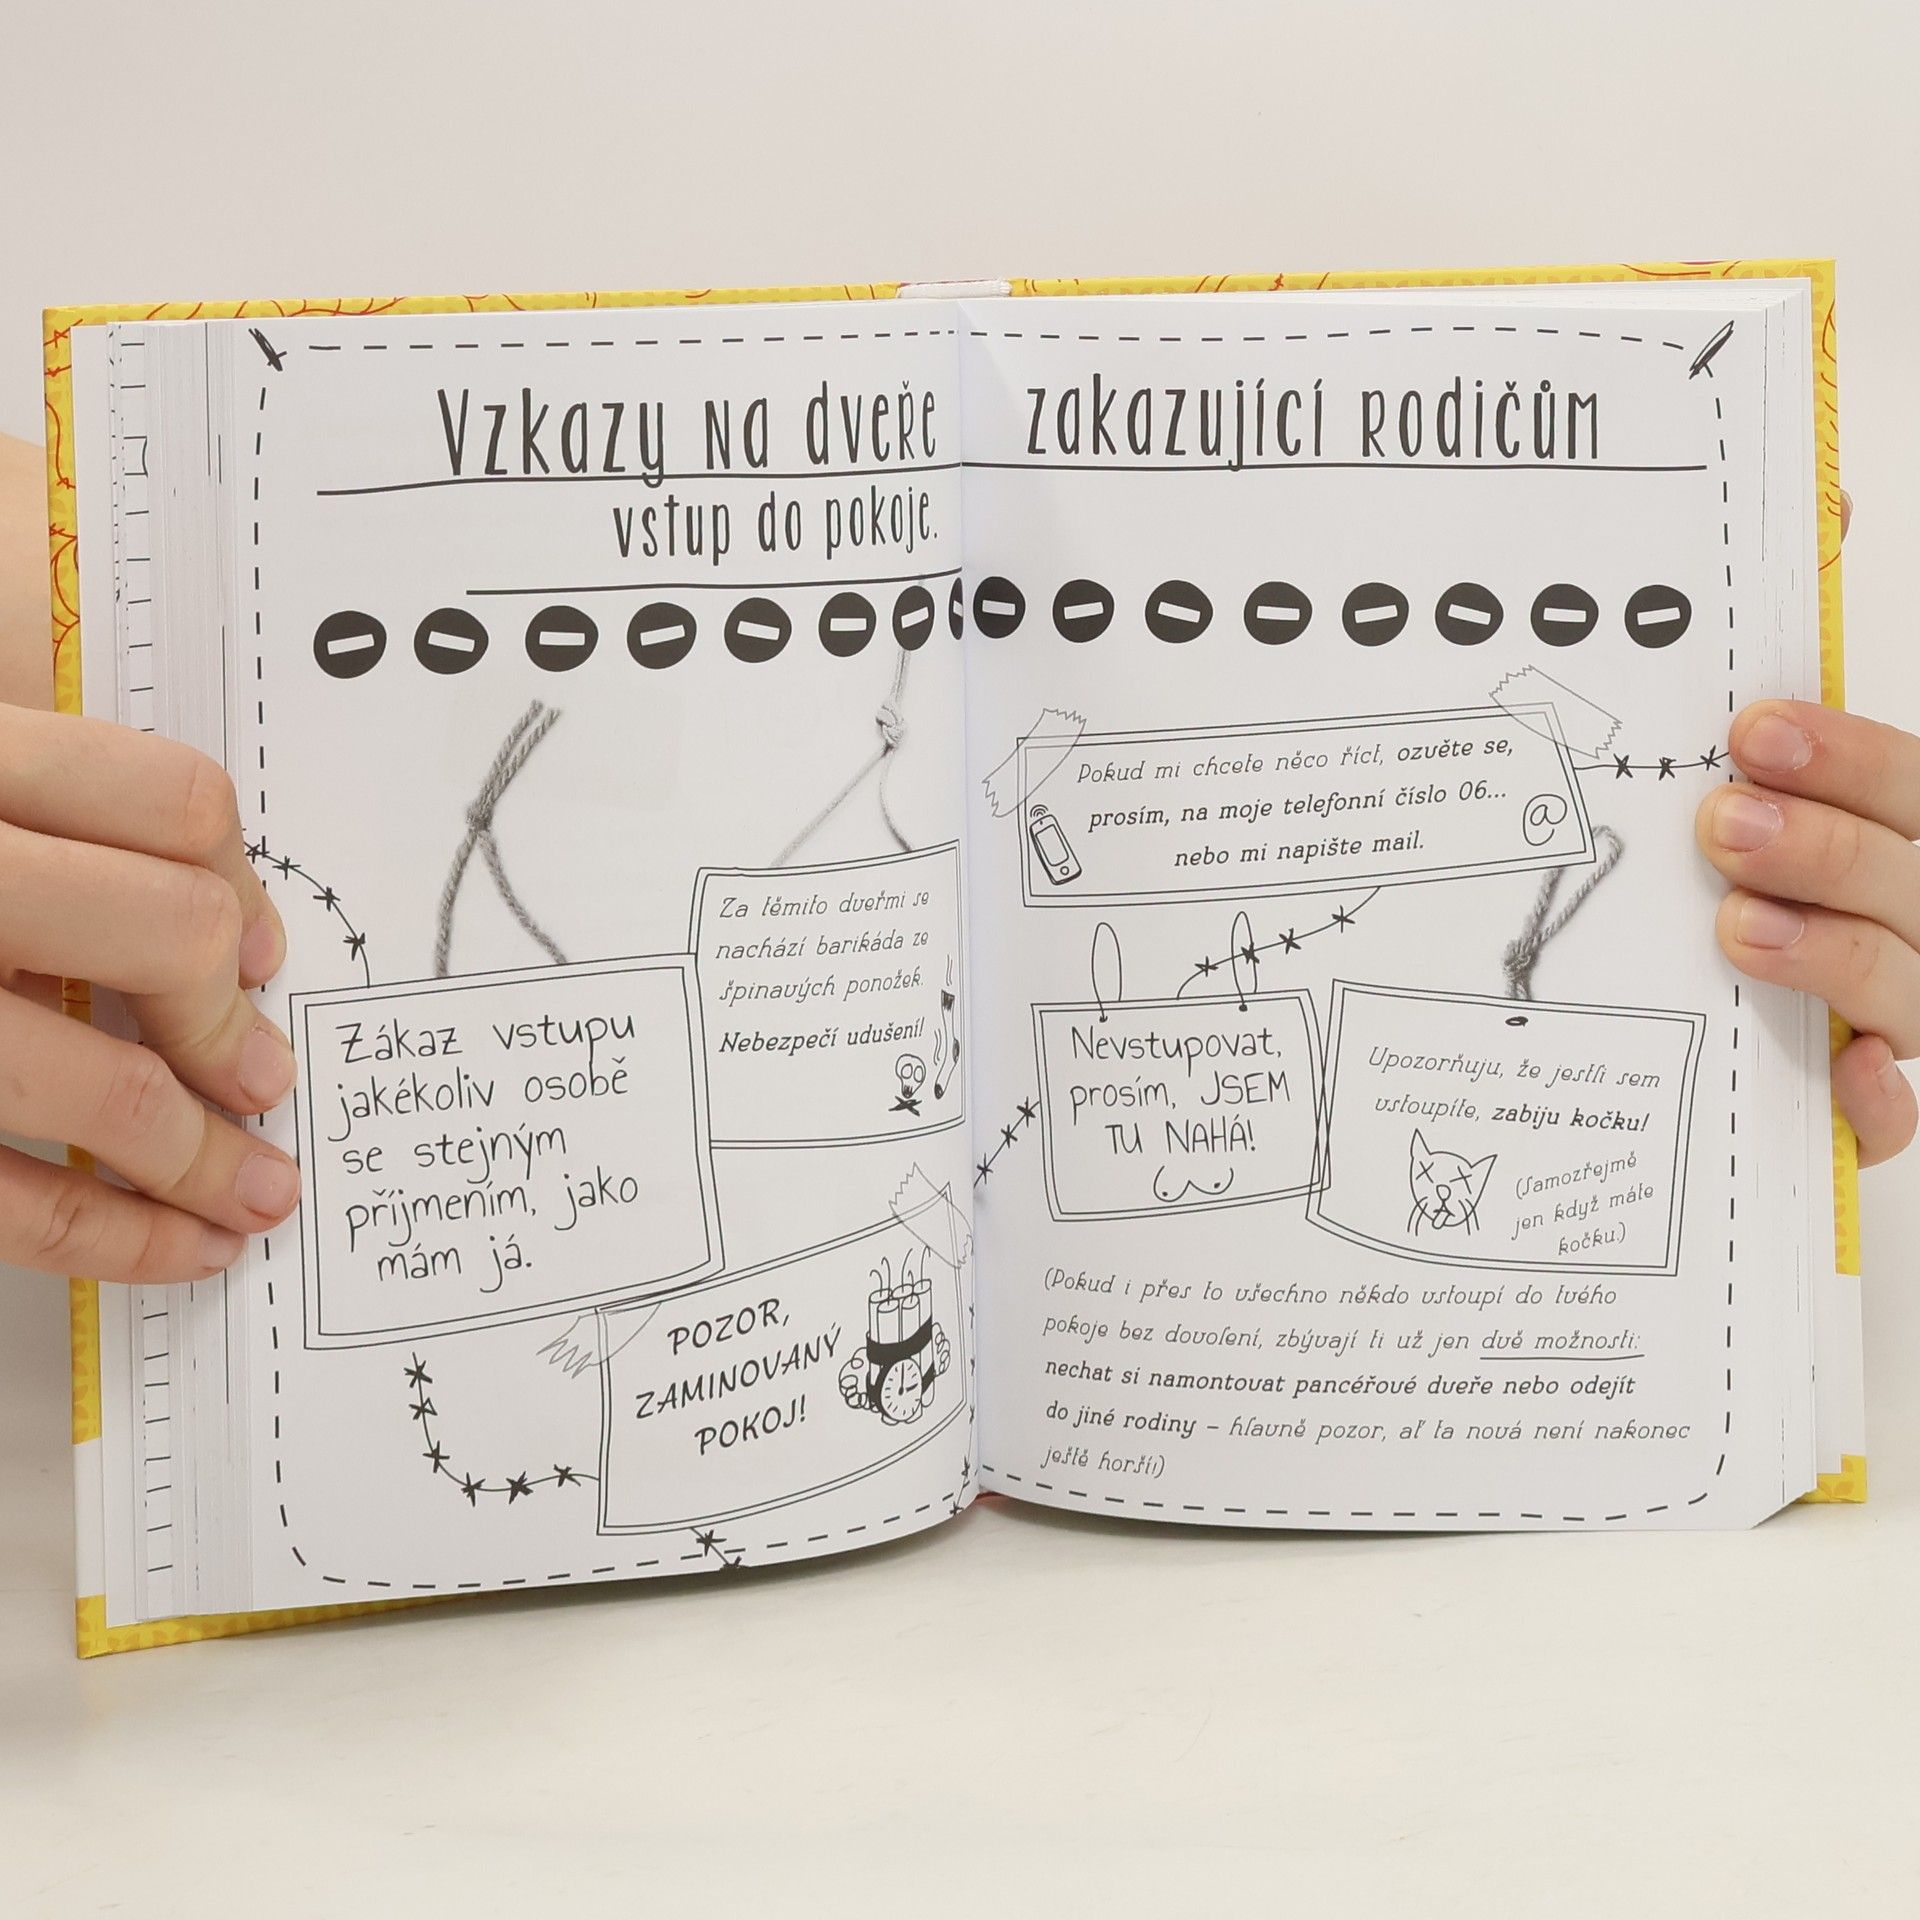 Vzkazy na dveře zakazující rodičům
vstup do pokoje.
Zákaz vstupu
jakékoliv osobě
se stejným
příjmením, jako
mám já.
Za těmito dveřmi se
nachází barikáda ze
špinavých ponožek.
Nebezpečí udušení!
POZOR,
ZAMINOVANÝ
POKOJ!
Pokud mi chcete něco říct, ozvěte se,
prosím, na moje telefonní číslo 06...
nebo mi napište mail.
@
Nevstupovat,
prosím, JSEM
TU NAHÁ!
Upozorňuju, že jestli sem
vstoupíte, zabiju kočku!
(Samozřejmě
jen když máte
kočku.)
(Pokud i přes to všechno někdo vstoupí do tvého
pokoje bez dovolení, zbývají ti už jen dvě možnosti:
nechat si namontovat pancéřové dveře nebo odejít
do jiné rodiny – hlavně pozor, ať ta nová není nakonec
ještě horší!)